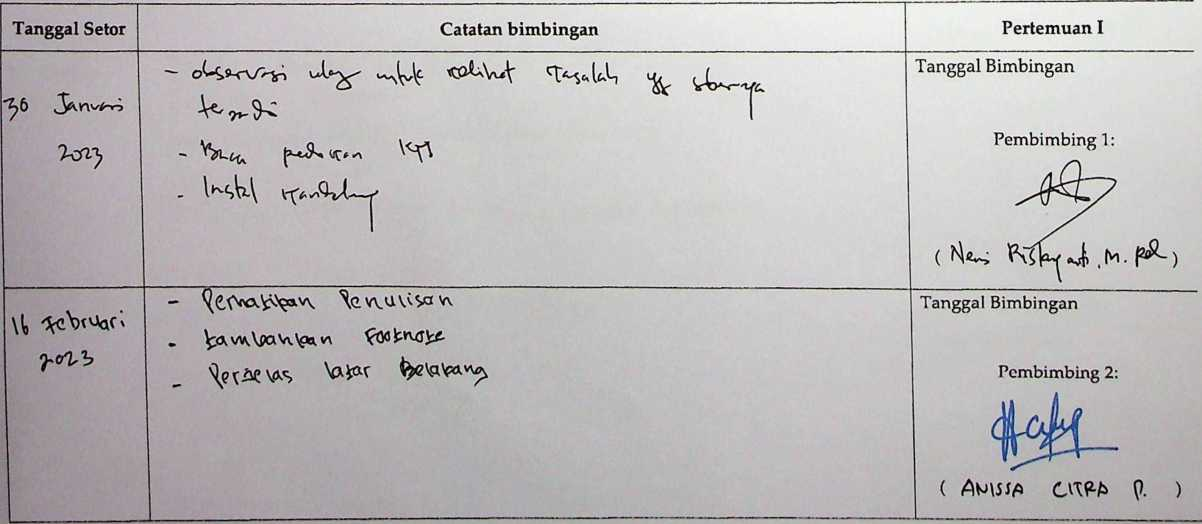 Tanggal Setor
Catatan bimbingan
Pertemuan I
30 Januari
2023
- observasi ulang untuk melihat masalah yg sbenarnya
terjadi
- Baca pedoman KTI
- Instal Mendeley
Tanggal Bimbingan
Pembimbing 1:
( Neni , M. Pd )
16 Februari
2023
- Perhatikan Penulisan
- tambahkan Footnote
- Perjelas latar Belakang
Tanggal Bimbingan
Pembimbing 2:
( ANISSA CITRA P. )